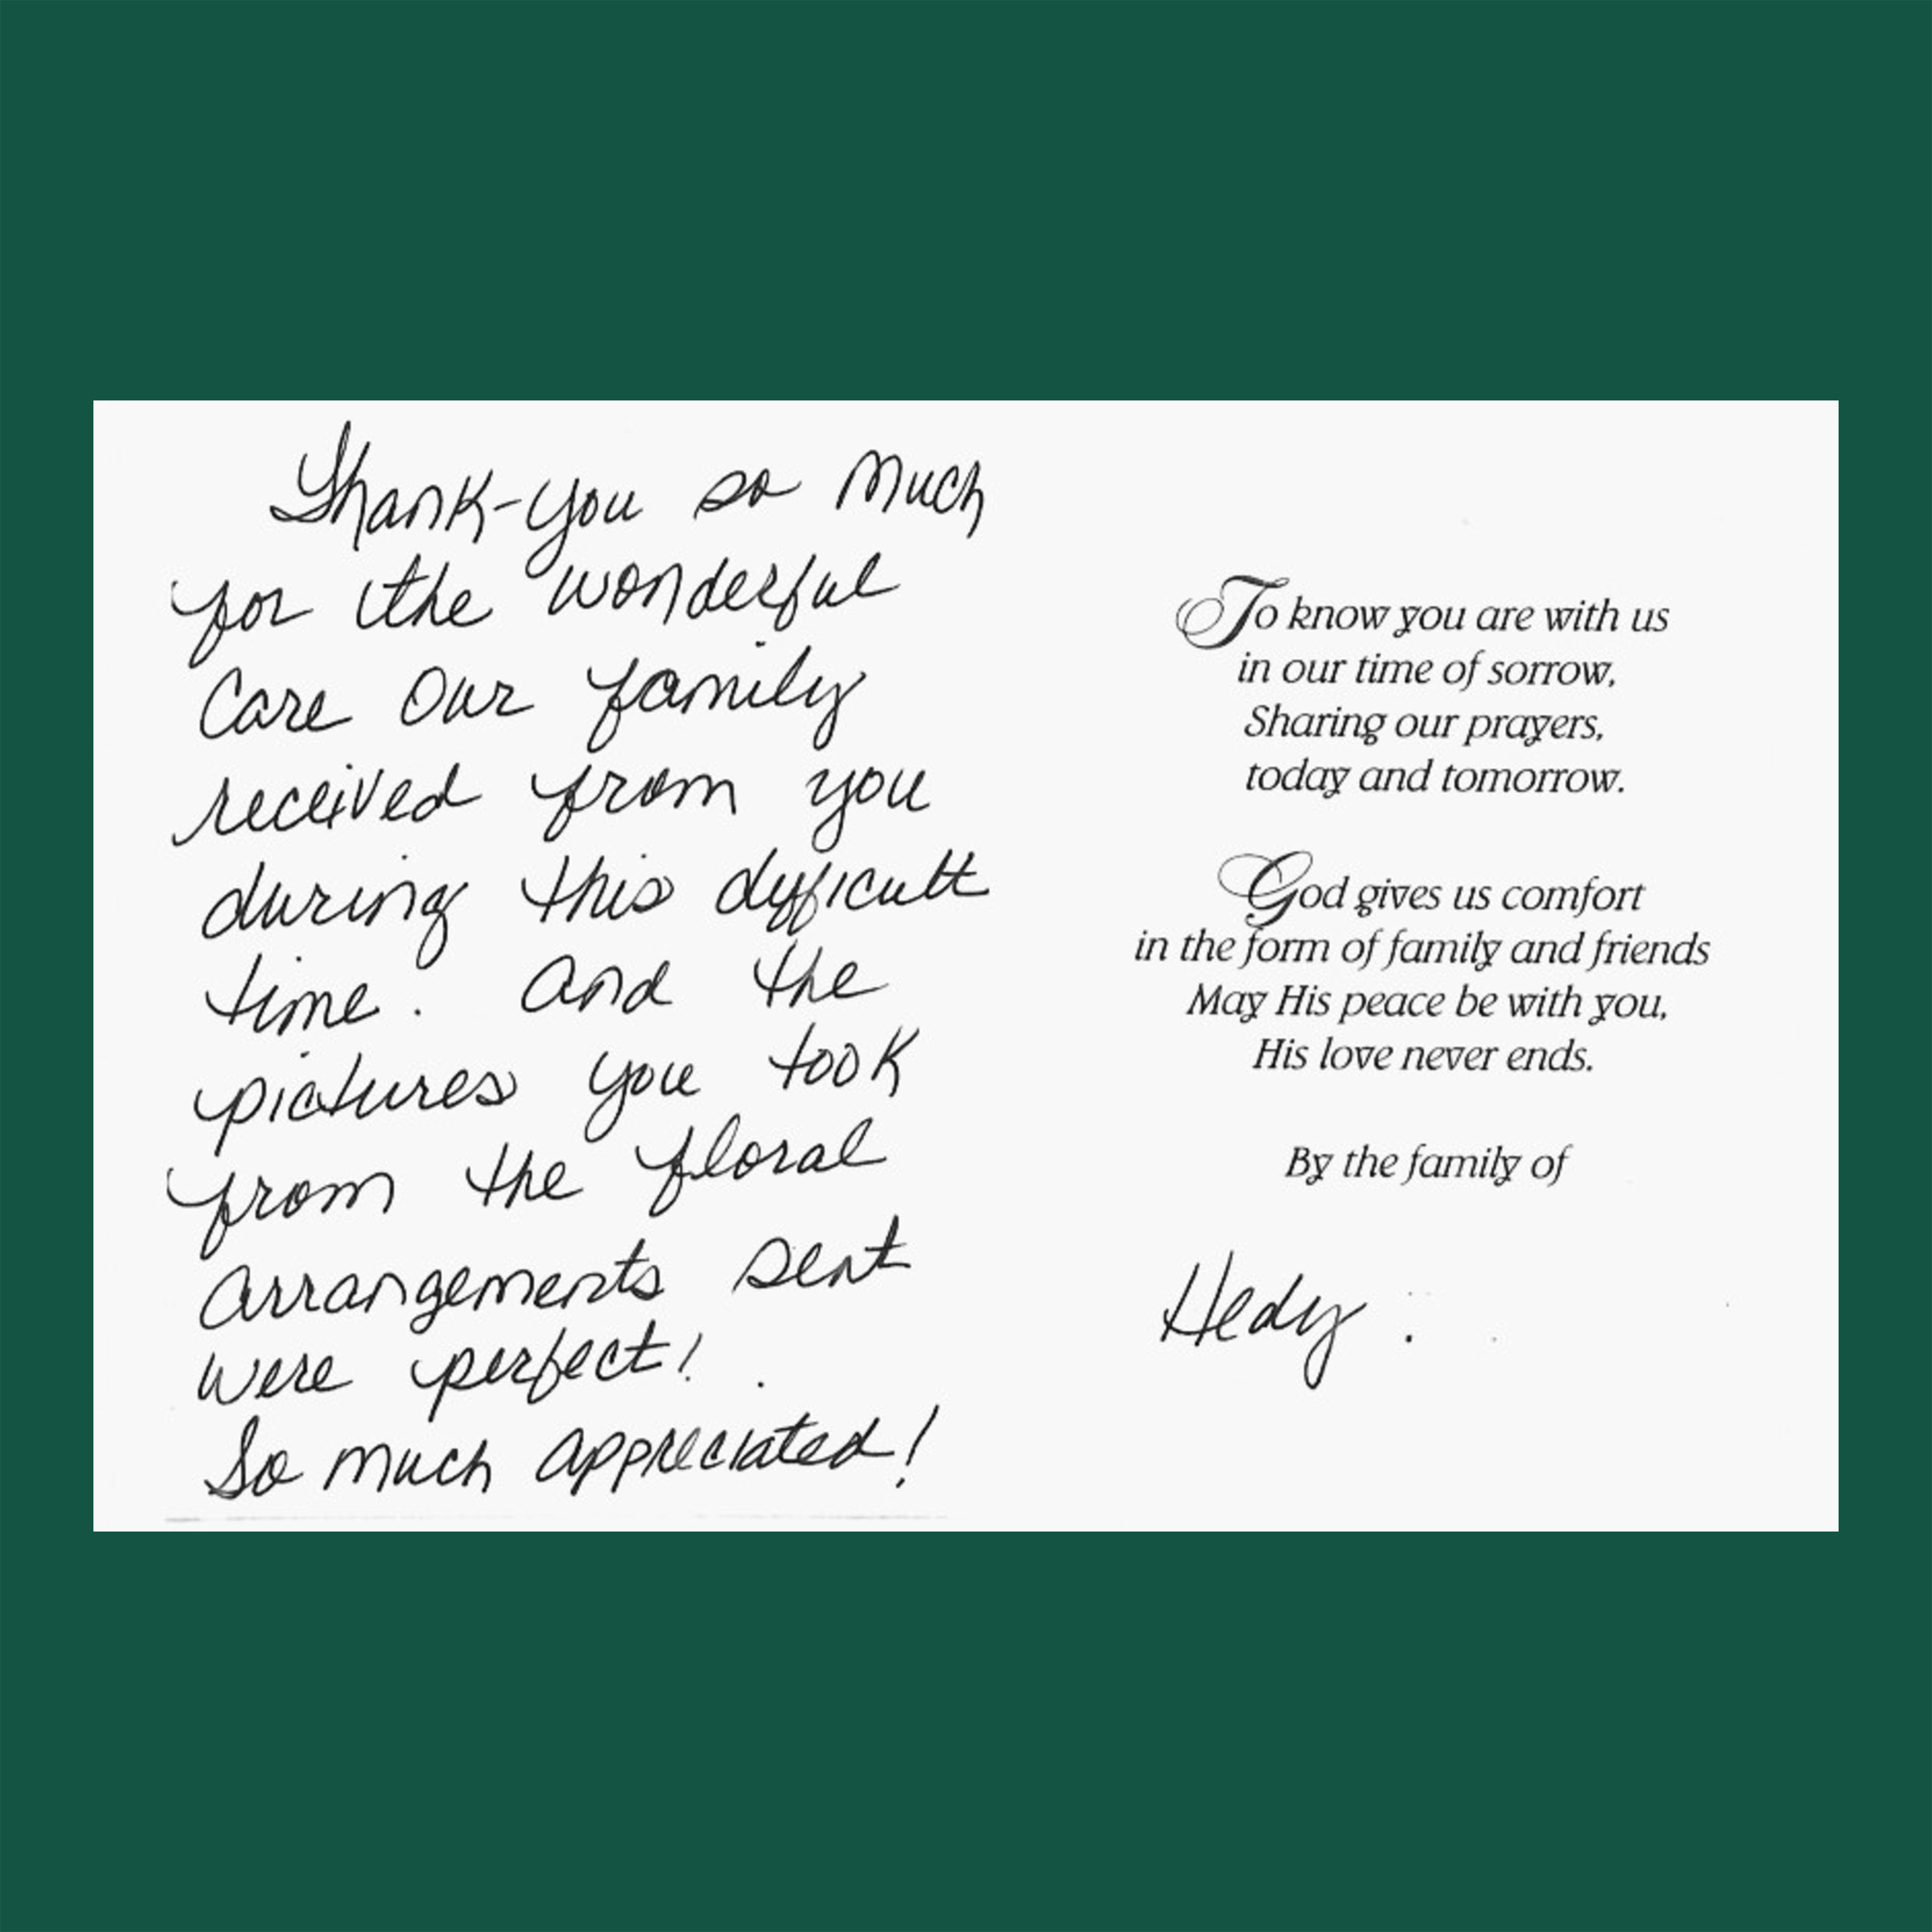 Thank-you so much
for the wonderful
Care Our family
received from you
during this difficult
time. And the
pictures you took
from the floral
arrangements sent
were perfect!
So much appreciated!
To know you are with us
in our time of sorrow,
Sharing our prayers,
today and tomorrow.
God gives us comfort
in the form of family and friends
May His peace be with you,
His love never ends.
By the family of
Hedy